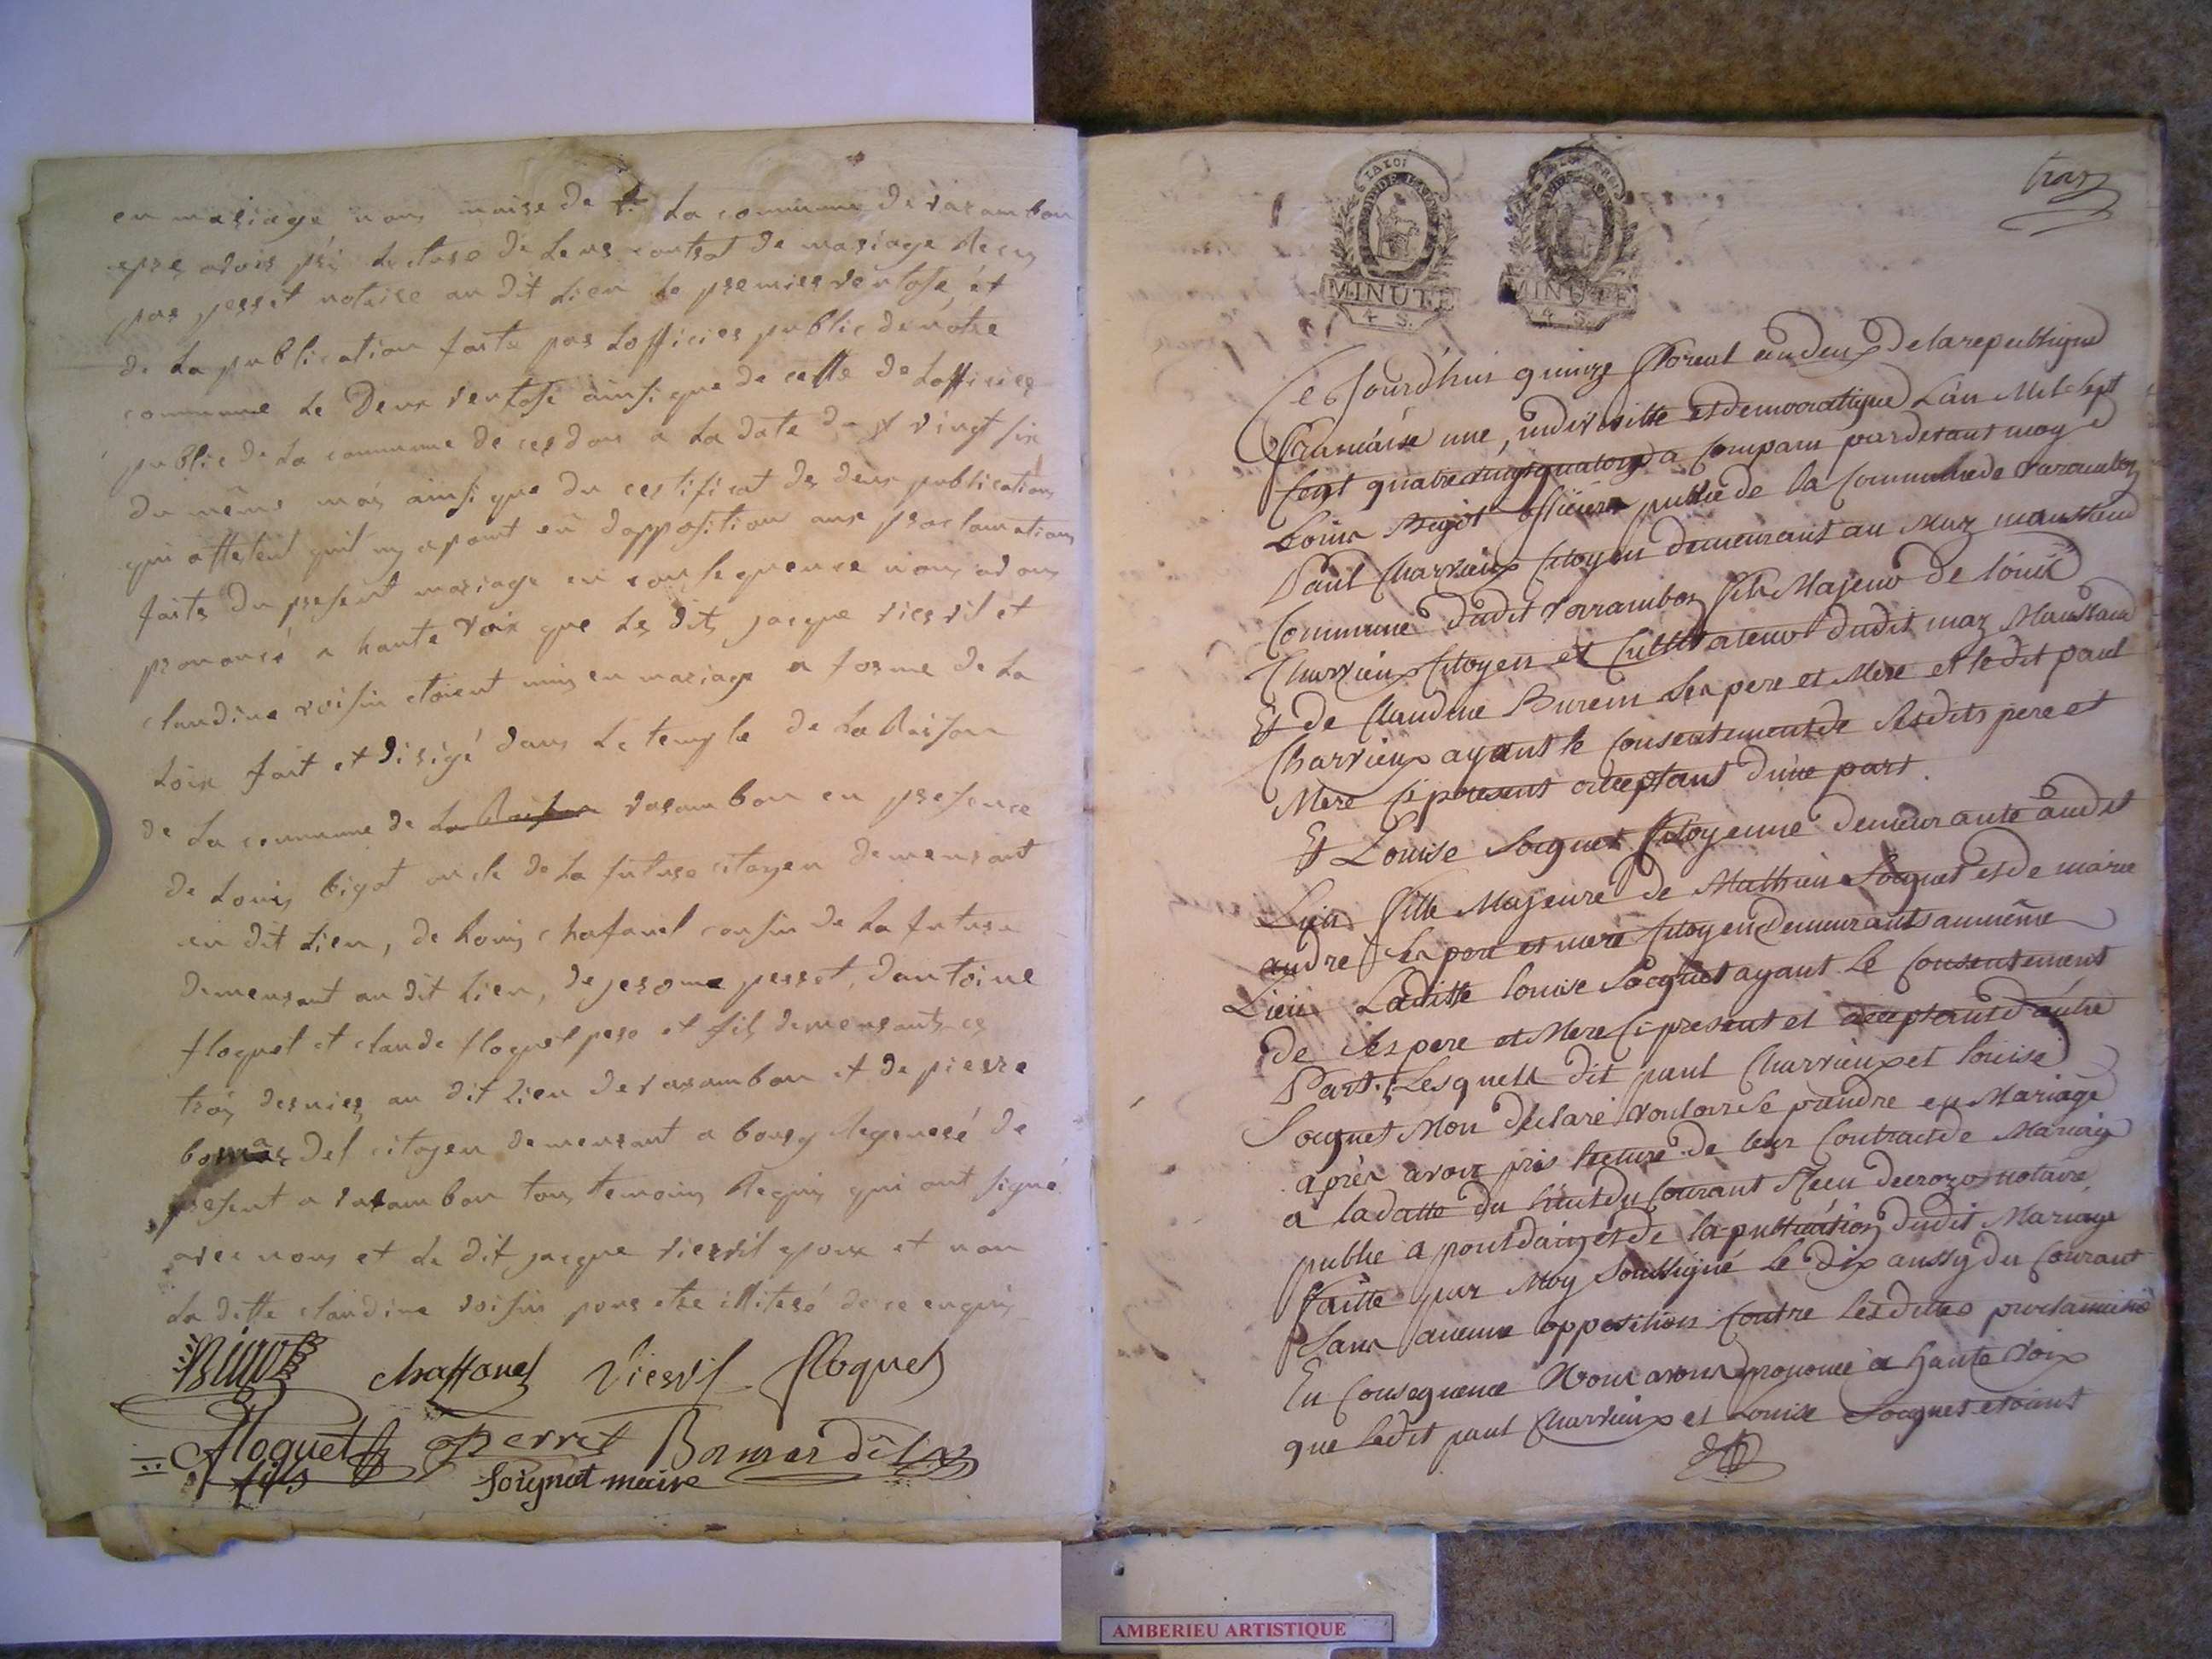 en mariage nous maire de la commune de varambon
apres avoir pri lecture de leur contrat de mariage Recu
par perret notaire au dit lieu le premier ventose, et
de la publication faite par Lofficier public de notre
commune le Deux ventose ainsi que de celle de Lofficier
public de la commune de cerdon a la date du vingt six
du même mois ainsi que du certificat des deux publications
qui attestent quil ny a point eu dopposition aux proclamations
faite du present mariage en consequence nous avons
prononcé a haute voix que les dits jacque viervil et
claudine voisin etoient unis en mariage a forme de la
Loix fait et dirigé dans le temple de la Raison
de la commune de la Raison varambon en presence
de Louis bigot oncle de la future citoyen demeurant
au dit lieu, de Louis chafanel cousin de la future
demeurant au dit lieu, de jerome perret, dantoine
floquet et claude floquet pere et fils demeurants ces
trois derniers au dit lieu de varambon et de pierre
del citoyen demeurant a bourg regeneré de
present a varambon tous temoins Requis qui ont signé
avec nous et le dit jacque viervil epoux et non
la ditte claudine voisin pour etre illiteré de ce enquis
Bigot chaffanel Viervil floquet
floquet perret Bornardel
fils Soignet maire
MINUTE MINUTE
4 S. 4 S.
trois
Ce Jourd'huy quinze floreal an deux de la republique
francaise une, indivisitte et democratique L'an Mil Sept
Cent quatre vingt quatorze a Comparu pardevant moy
Louis Bigot officier public de la Commune de varambon
Paul Charvieux Citoyen demeurant au Maz
Commune dudit varambon fils Majeur de louis
Charvieux Citoyen et Cultivateur dudit maz
Et de Claudine Burein Ses pere et Mere et le dit paul
Charvieux ayant le Consentement de Sesdits pere et
Mere Ci present acceptant d'une part.
Et Louise Socquet Citoyenne demeurante audit
Lieu fille Majeure de Mathieu Socquet et de marie
andre Ses pere et mere Citoyen Demeurants au même
Lieu Laditte louise Socquet ayant Le Consentement
de Ses pere et Mere Ci present et acceptant d'autre
Part; Lesquels dit paul Charvieux et louise
Socquet Mon déclaré vouloir Se prendre en Mariage
après avoir pris lecture de leur Contract de Mariage
a la datte du huit du Courant Recu notaire
public a pontdain et de la publication dudit Mariage
faitte par Moy Soussigné Le Dix aussy du Courant
Sans aucune opposition Contre Lesdittes
En Consequence Nous avons prononcé a haute voix
que ledit paul Charvieux et Louise Socquet etoient
AMBERIEU ARTISTIQUE